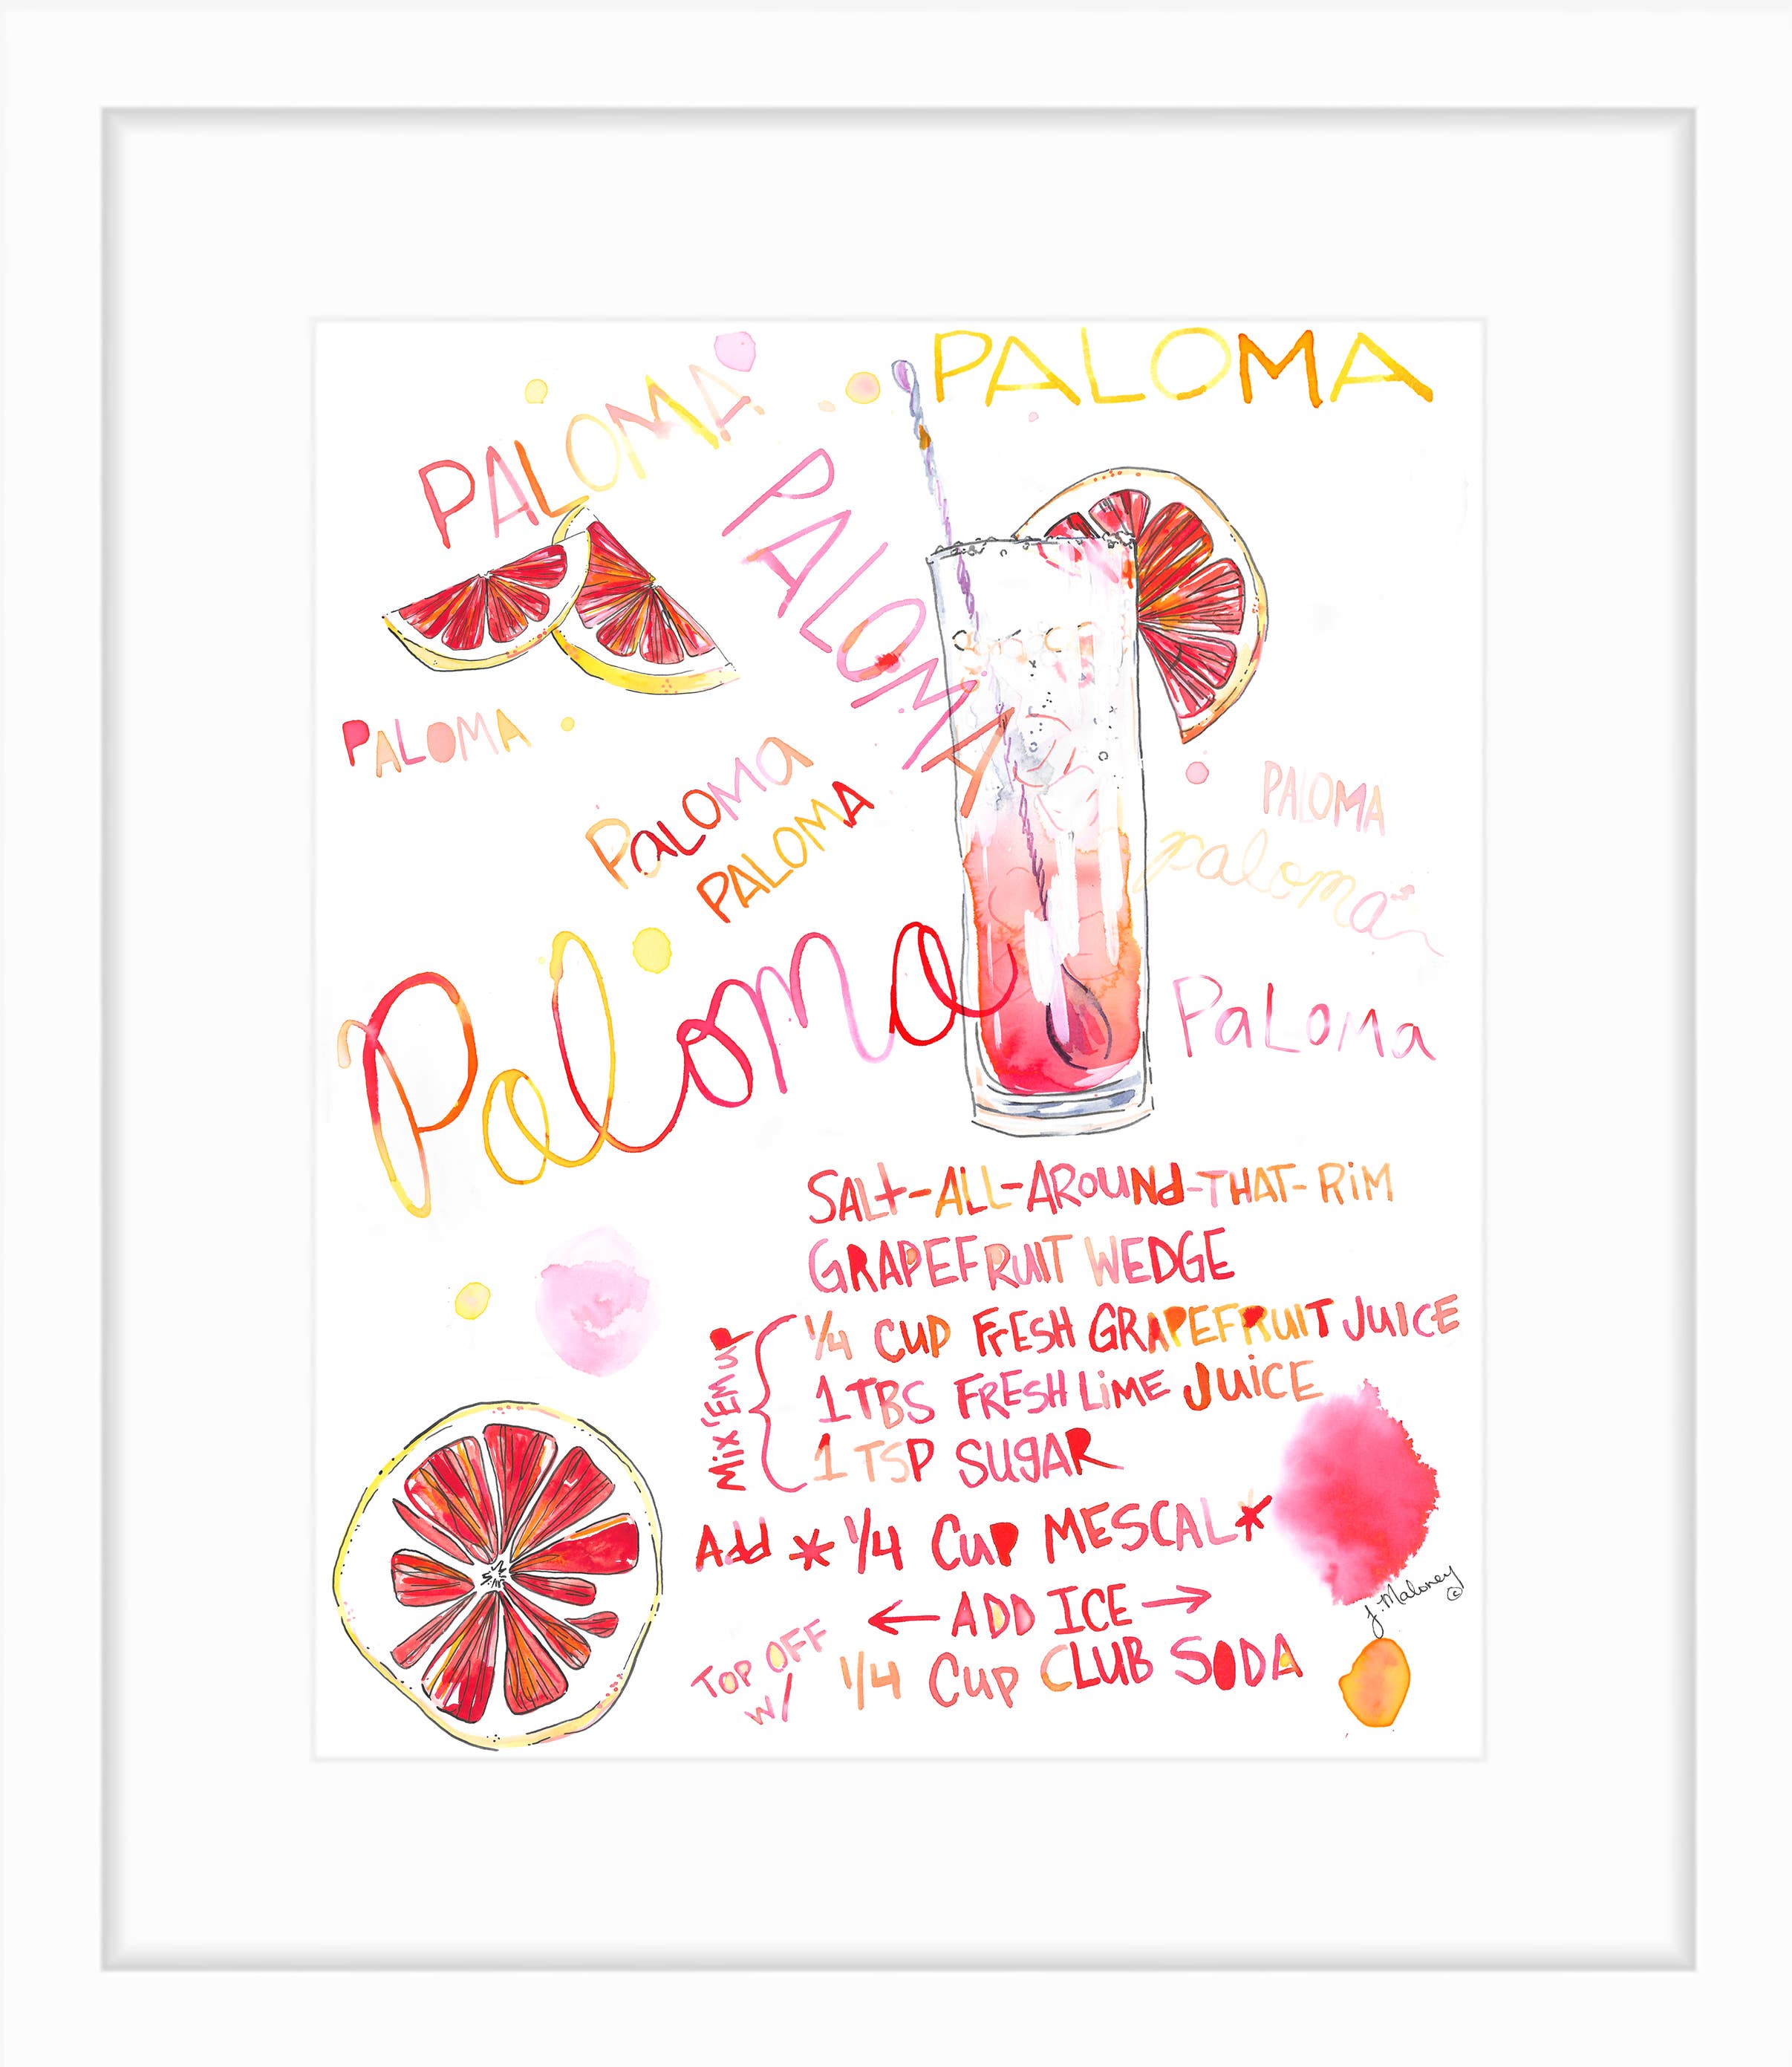 PALOMA
PALOMA
PALOMA
PALOMA
PaLOMa
PALOMA
PALOMA
paloma
Paloma
PaLOMa
SALt-ALL-AROUNd-THAT-RiM
GRAPEFRUIT WEDGE
Mix 'EM uP
1/4 CUP FrESH GRAPEFRUIT JUICE
1 TBS FRESH LiME JuiCE
1 TSP SUgAR
Add *1/4 CuP MESCAL*
←ADD ICE→
TOP OFF
W/ 1/4 Cup CLUB SODA
J. Maloney ©